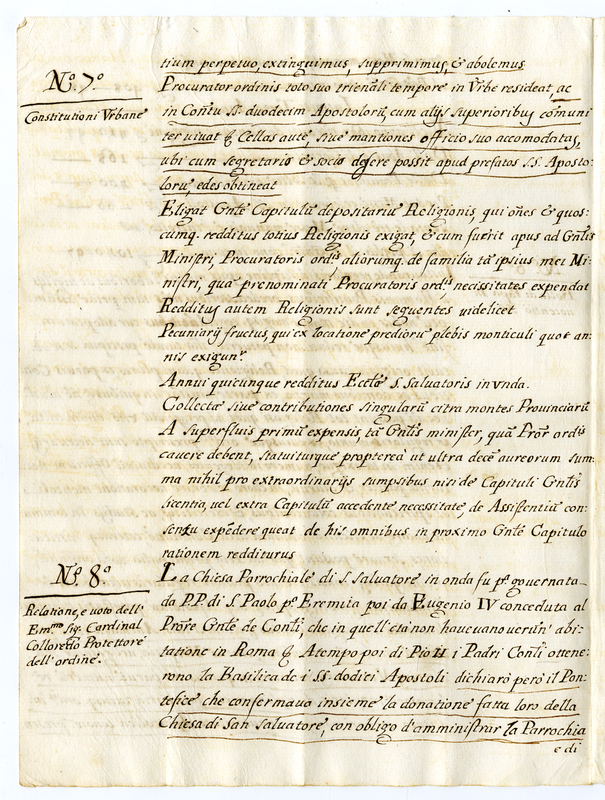 tium perpetuo, extinguimus, supprimimus, & abolemus
N.º 7.º
Procurator ordinis toto suo trienali tempore in Vrbe resideat, ac
Constitutioni Vrbane
in Conu̅ SS. duodecim Apostoloru̅, cum alijs superioribus co̅muni
ter uiuat & Cellas aute̅, siue mantiones officio suo accomodatas,
ubi cum segretario & socio degere possit apud prefatos S.S. Aposto:
loru̅, edes obtineat
Eligat Gn̅le Capitulu̅ depositariu̅ Religionis, qui o̅nes & quos:
cumq. redditus totius Religionis exigat, & cum fuerit opus ad Gn̅lis
Ministri, Procuratoris ord.s aliorumq. de familia ta̅ ipsius met Mi:
nistri, qua̅ prenominati Procuratoris ord.s necissitates expendat
Redditus autem Religionis sunt seguentes uidelicet
Pecuniarij fructus, qui ex locatione predioru̅ plebis monticuli quot an:
nis exigun.r
Annui quicunque redditus Eccl̅æ S. Saluatoris in vnda.
Collectæ siue contributiones singularu̅ citra montes Prouinciaru̅
A superfluis primu̅ expensis, ta̅ Gn̅lis minister, qua̅ Pror̅ ord.s
cauere debent, statuiturque propterea ut ultra dece̅ aureorum sum:
ma nihil pro extraordinarijs sumptibus nisi de Capituli Gn̅lis
licentia, uel extra Capitulu̅ accedente necessitate, de Assistentiu̅ con:
sensu expe̅dere queat de his omnibus in proximo Gn̅le Capitulo
rationem redditurus
N.º 8.º
La Chiesa Parrochiale di S. Saluatore in onda fu p.ª gouernata
Relatione, e voto dell'
Em.mo Sig. Cardinal
Colloredo Protettore
dell'ordine.
da P.P. di S. Paolo p.º Eremita poi da Eugenio IV conceduta al
Pro̅re Gn̅le de Con̅ti, che in quell'età non haueuano uerun' abi:
tatione in Roma & A tempo poi di Pio II i Padri Con̅ti ottene:
rono la Basilica de i SS. dodici Apostoli dichiarò però il Pon:
tefice che confermaua insieme la donatione fatta loro della
Chiesa di San Saluatore, con obligo d'amministrar la Parrochia
e di